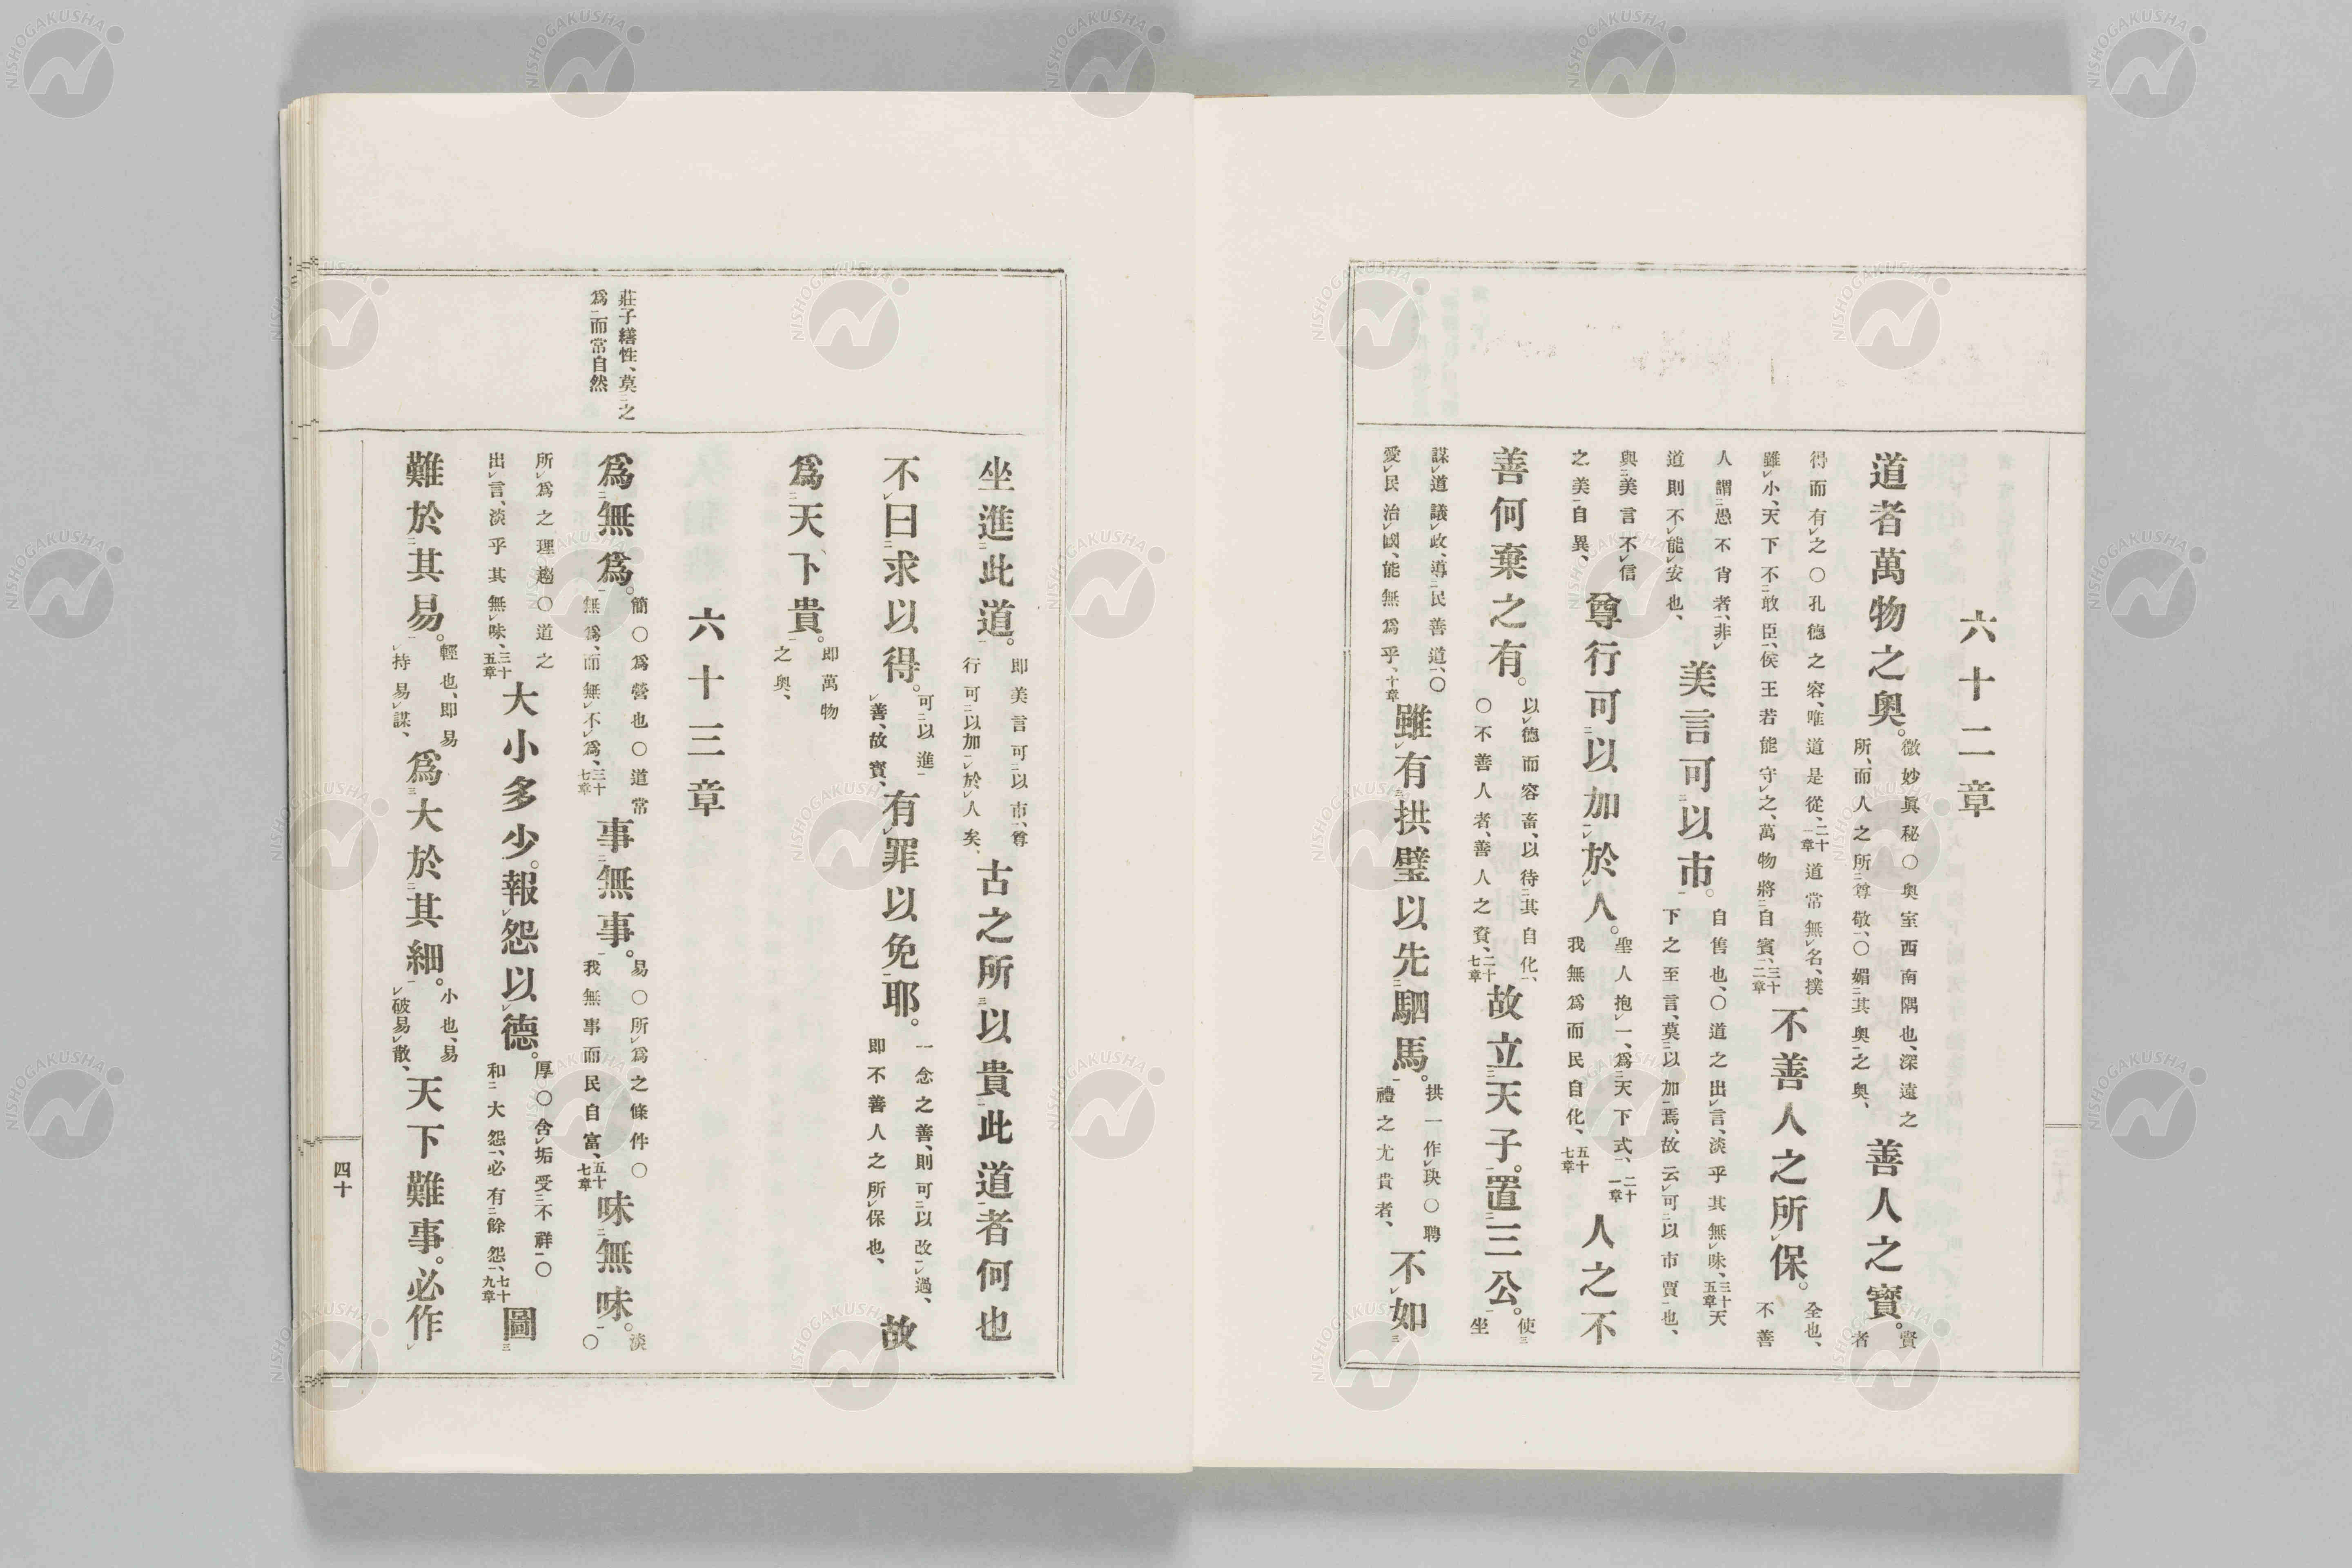 六十二章
道者萬物之奧。微妙眞秘〇奧室西南隅也、深遠之所、而人之所尊敬、〇媚其奧之奧、善人之寶。賢者
得而有之〇孔德之容、唯道是從、二十一章道常無名、撲雖小、天下不敢臣、侯王若能守之、萬物將自賓、三十二章不善人之所保。全也、不善
人謂愚不肖者、非道則不能安也、美言可以市。自售也、〇道之出言、淡乎其無味、三十五章天下之至言、莫以加焉、故云可以市賈也、
與美言不信之美自異、尊行可以加於人。聖人抱一、爲天下式、二十一章我無爲而民自化、五十七章人之不
善何棄之有。以德而容畜、以待其自化、〇不善人者、善人之資、二十七章故立天子。置三公。使坐
謀道議政、導民善道、〇愛民治國、能無爲乎、十章雖有拱璧以先駟馬。拱一作玦〇聘禮之尤貴者、不如
坐進此道。即美言可以市、尊行可以加於人矣、古之所以貴此道者何也
不曰求以得。可以進善、故寶、有罪以免耶。一念之善、則可以改過、即不善人之所保也、故
爲天下貴。即萬物之奧、
六十三章
莊子繕性、莫之
爲而常自然
爲無爲。簡〇爲營也〇道常無爲、而無不爲、三十七章事無事。易〇所爲之條件〇我無事而民自富、五十七章味無味。淡〇
所爲之理趣〇道之出言、淡乎其無味、三十五章大小多少。報怨以德。厚〇含垢受不祥〇和大怨、必有餘怨、七十九章圖
難於其易。輕也、即易持易謀、爲大於其細。小也、易破易散、天下難事。必作
四十